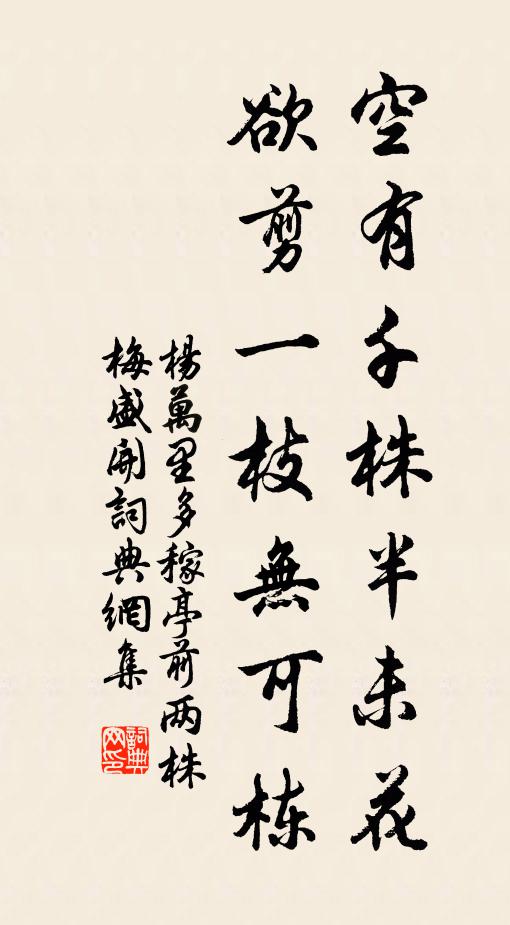 空有千株半未花
欲剪一枝無可栋
楊萬里多稼亭前两株
梅盛開詞典網集
詞典網印